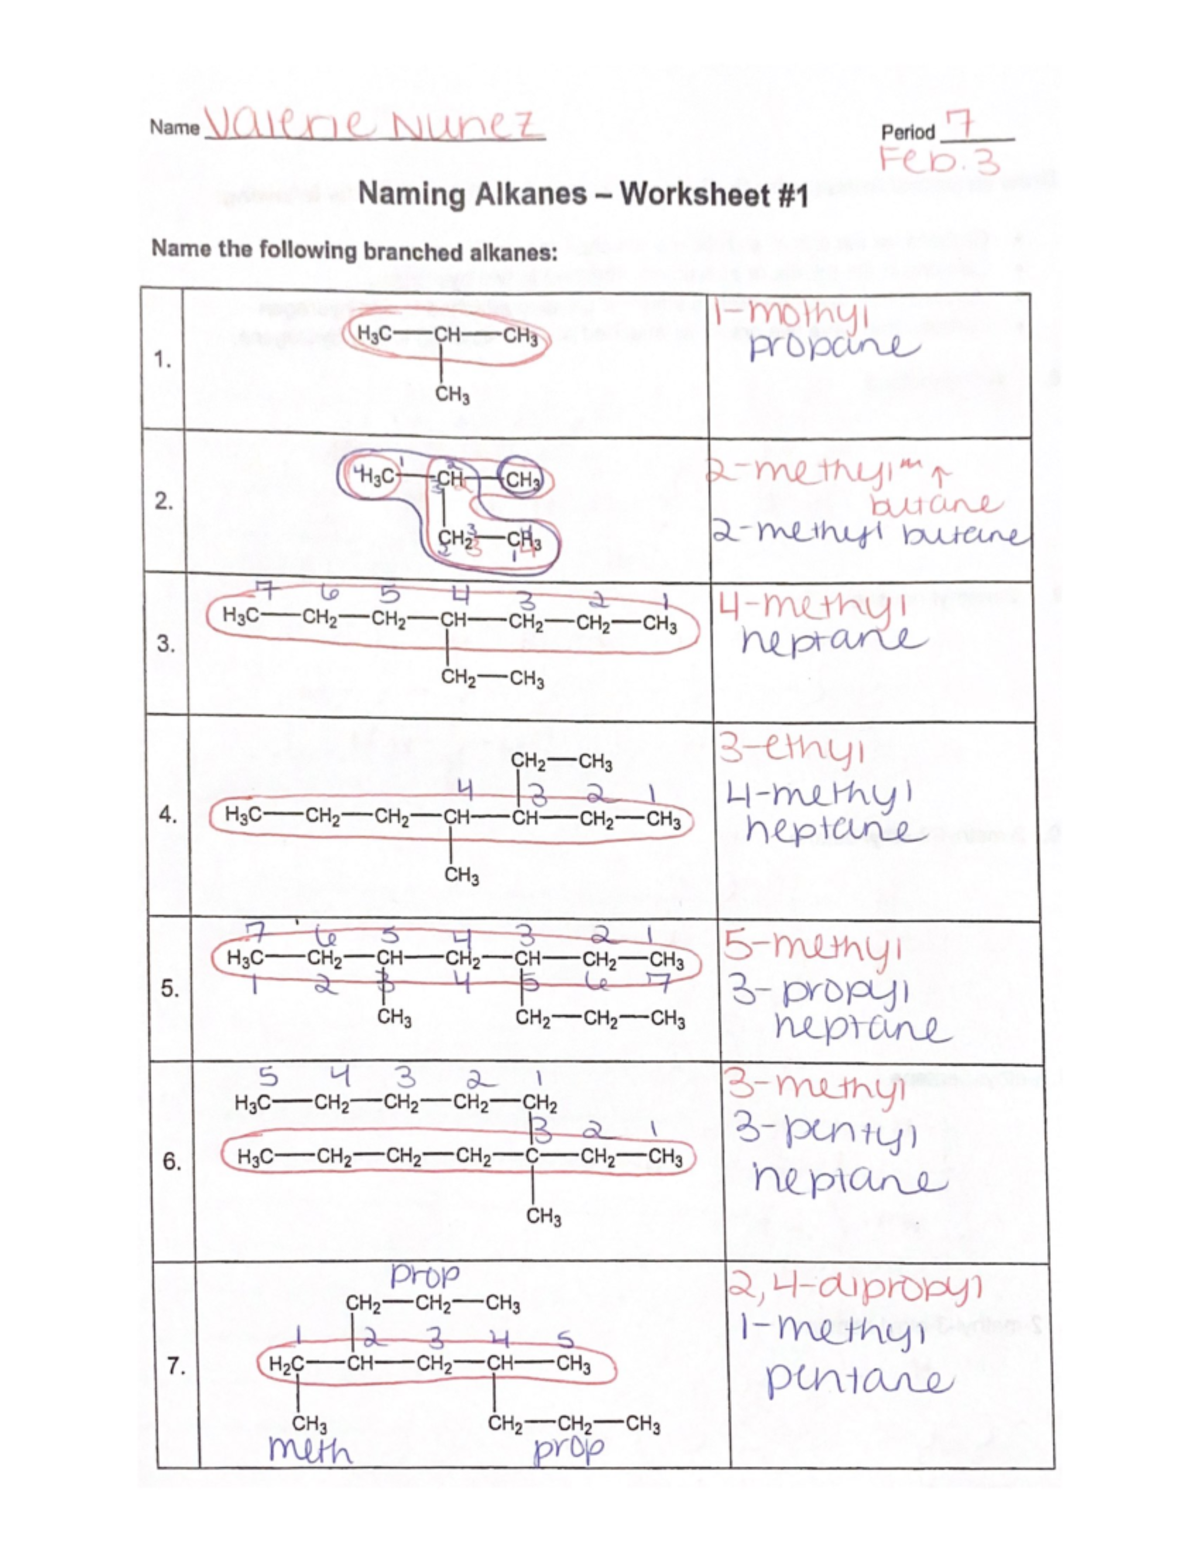 Name Valerie Nunez Period 7
Feb. 3
Naming Alkanes – Worksheet #1
Name the following branched alkanes:
1.
H₃C—CH—CH₃
CH₃
1-mothyl
propane
2.
4 H₃C 1 CH 2 3 2 CH₃
CH₂ 3 2 3 — CH₃ 4 1 4
2-methyl
butane
2-methyl butane
3.
7 6 5 4 3 2 1
H₃C—CH₂—CH₂—CH—CH₂—CH₂—CH₃
CH₂—CH₃
4-methyl
heptane
4.
CH₂—CH₃
4 3 2 1
H₃C—CH₂—CH₂—CH—CH—CH₂—CH₃
CH₃
3-ethyl
4-methyl
heptane
5.
7 6 5 4 3 2 1
H₃C—CH₂—CH—CH₂—CH—CH₂—CH₃
1 2 3 4 5 6 7
CH₃ CH₂—CH₂—CH₃
5-methyl
3-propyl
heptane
6.
5 4 3 2 1
H₃C—CH₂—CH₂—CH₂—CH₂
3 2 1
H₃C—CH₂—CH₂—CH₂—C—CH₂—CH₃
CH₃
3-methyl
3-pentyl
heptane
7.
prop
CH₂—CH₂—CH₃
1 2 3 4 5
H₂C—CH—CH₂—CH—CH₃
CH₃ CH₂—CH₂—CH₃
meth prop
2,4-dipropyl
1-methyl
pentane